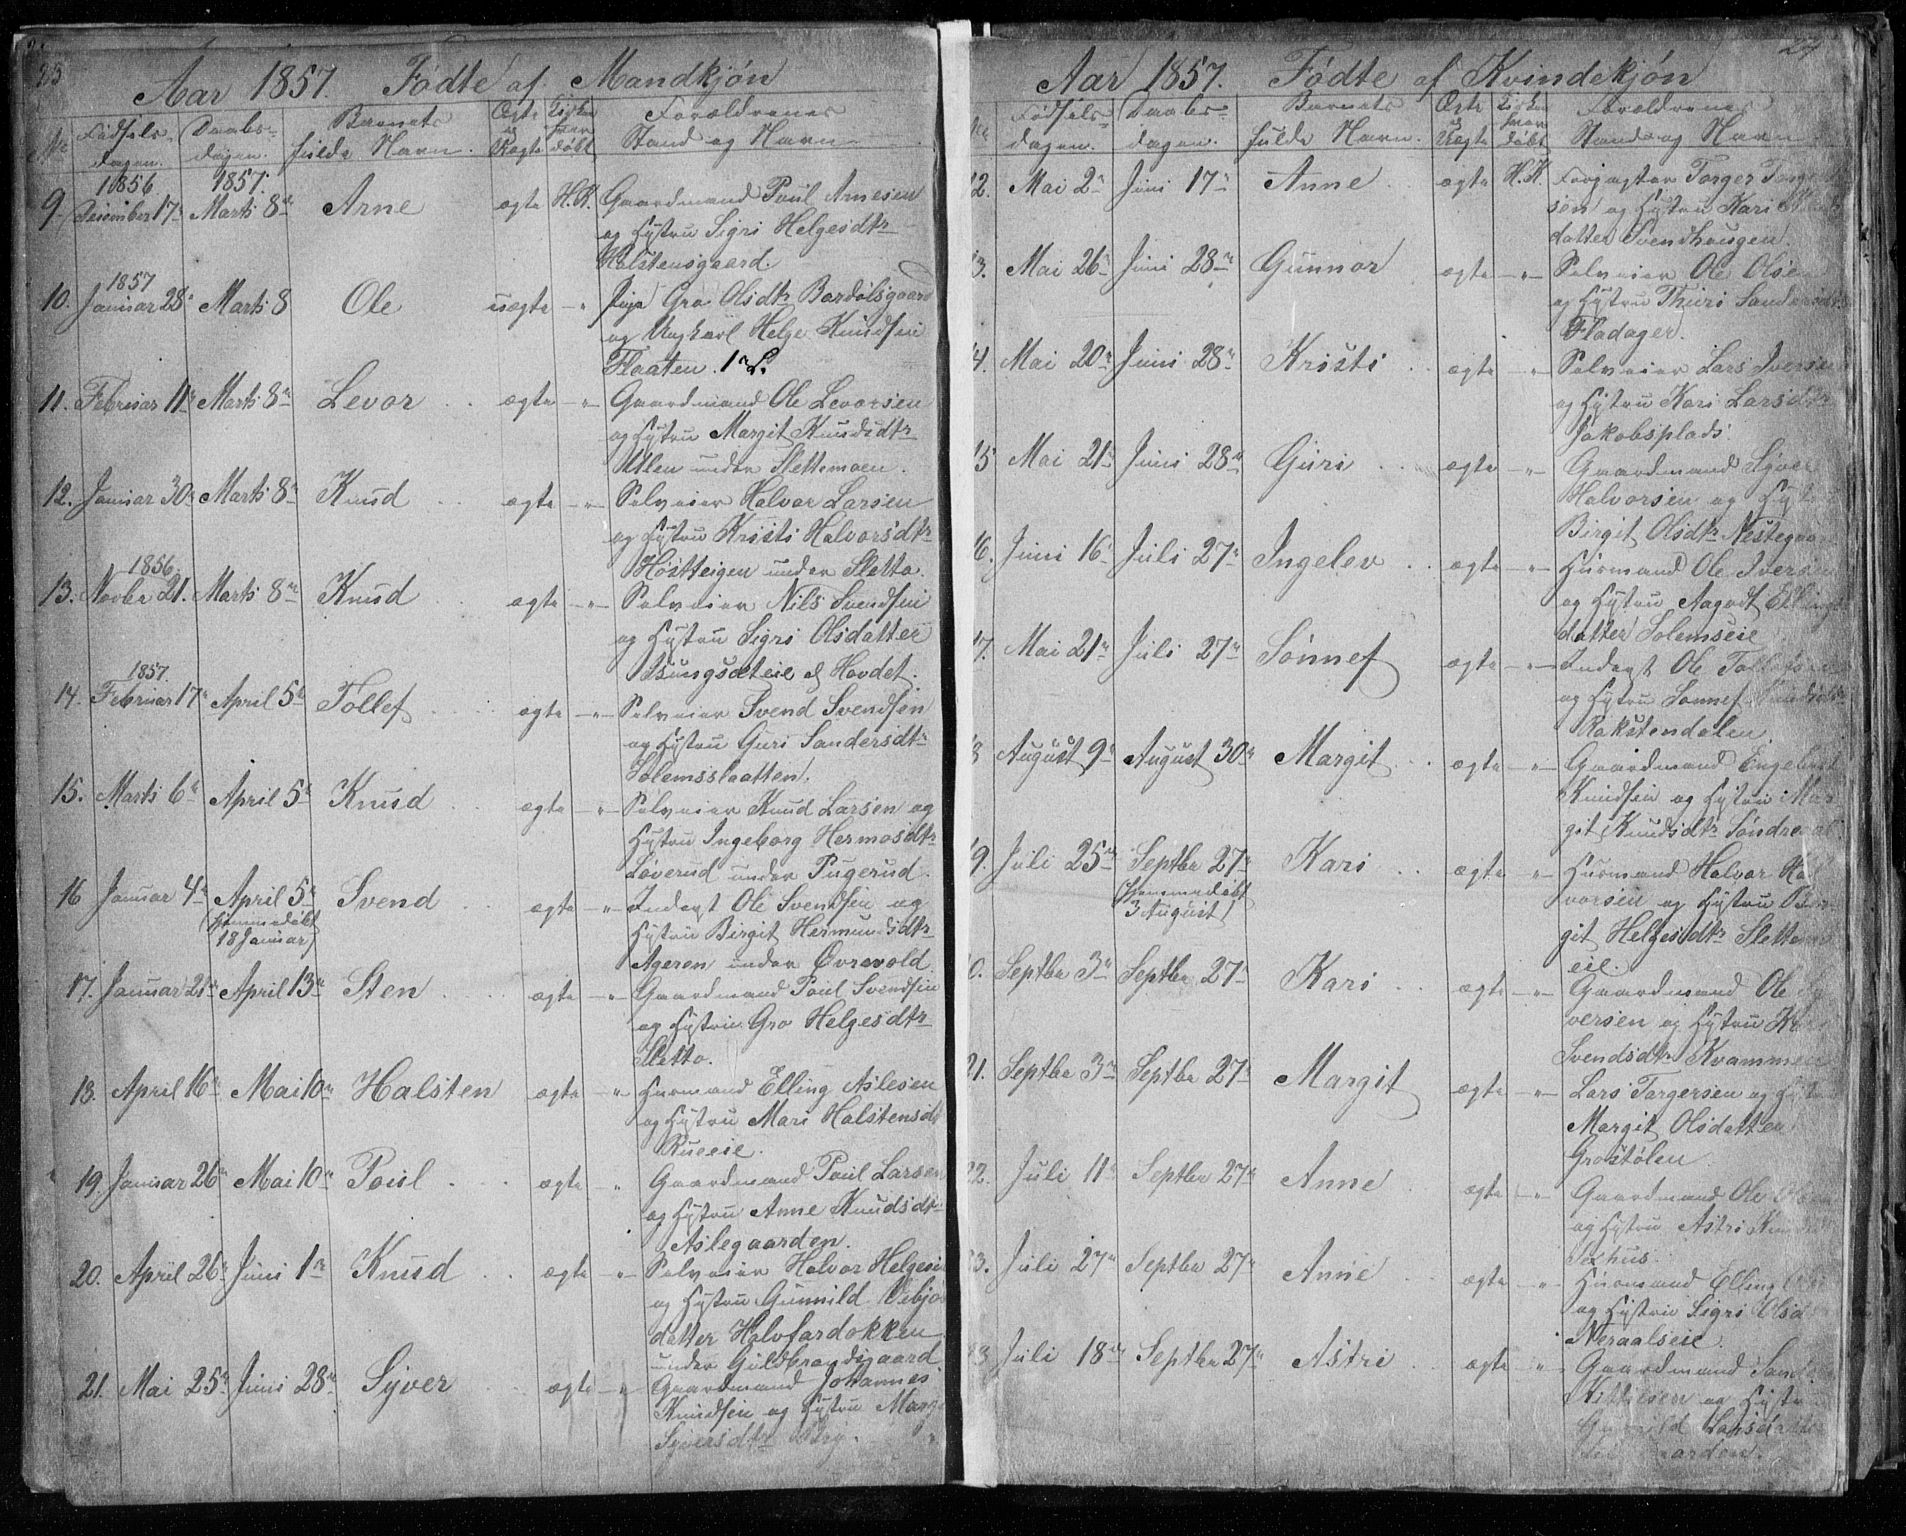 Aar 1857. Fødte af Mandkjøn
No Fødsels- dagen. Daabs- dagen. Barnets fulde Navn. Ægte og Uægte Kirke hjemdøbt Forældrenes Stand og Navn
9. 1856 Desember 17. 1857. Marts 8de Arne ægte H.K. Gaardmand Poul Arnesen
og Hystru Sigri Helgesdtr
Halstensgaard.
10. 1857 Januar 28. Marts 8 Ole uægte " Pige Gro Olsdtr Bardølsgaard
og Ungkarl Helge Knudsen
Flaaten. 1ste L.
11. Februar 11te Marts 8de Levor ægte " Gaardmand Ole Levorsen
og Hystru Margit Knudsdtr
Ulen under Slettemoen.
12. Januar 30te Marts 8de Knud ægte " Selveier Halvor Larsen
og Hystru Kristi Halvorsdtr
Høstteigen under Sletto.
13. 1856. Novbr 21. Marts 8de Knud ægte " Selveier Nils Svendsen
og Hystru Sigri Olsdatter
af Hovdet.
14. 1857. Februar 17. April 5te Tollef ægte " Selveier Svend Svendsen
og Hystru Guri Sandersdtr
Solemsslaatten.
15. Marts 6te April 5te Knud ægte " Selveier Knud Larsen og
Hystru Ingeborg Hermosdtr
Løverud under Pugerud.
16 Januar 4de April 5te (Hjemmedøbt 18 Januar) Svend ægte " Inderst Ole Svendsen og
Hystru Birgit Hermundsdtr
Ageren under Øvrevold.
17. Januar 21de April 13de Sten ægte " Gaardmand Poul Svendsen
og Hystru Gro Helgesdtr
Sletto.
18. April 16de Mai 10de Halsten ægte " Husmand Elling Aslesen
og Hystru Mari Halstensdt
Rueeie.
19. Januar 26de Mai 10de Poul ægte " Gaardmand Poul Larsen
og Hystru Anne Knudsdtr
Aslegaarden.
20. April 26de Juni 1ste Knud ægte " Selveier Halvor Helgesen
og Hystru Gunnild
datter Halvfardokken
under Guldbrandsgaard
21. Mai 25de Juni 28de Syver ægte " Gaardmand Johannes
Knudsen og Hystru Marg
Syversdtr Bry.
27
Aar 1857. Fødte af Kvindekjøn
Fødsels- dagen. Daabs- dagen. Barnets fulde Navn. Ægte og Uægte Kirke hjemdøbt Forældrenes Stand og Navn
2. Mai 2de Juni 17de Anne ægte H.K. Forpagter Torger Torger
sen og Hystru Kari
datter Svendhaugen.
3. Mai 26de Juni 28de Gunnor ægte " Selveier Ole Olsen
og Hystru Thuri Sandersdtr
Fladager.
4. Mai 20de Juni 28de Kristi ægte " Selveier Lars Iversen
og Hystru Kari Larsdtr
Jakobsplads.
15 Mai 21de Juni 28de Guri ægte " Gaardmand Syver
Halvorsen og Hyst
Birgit Olsdtr Nestegaard
16. Juni 16. Juli 27de Ingelev ægte " Husmand Ole Iversen
og Hystru Aagodt Ellings
datter Solemseie
17. Mai 21de Juli 27de Sønnef ægte " Inderst Ole Tollefsen
og Hystru Sønnef
Rokstendalen.
8 August 9de August 30te Margit ægte " Gaardmand Engebret
Knudsen og Hystru Mar
git Knudsdtr Søndre
9. Juli 25de Septbr 27de (Hjemmedøbt 3 August) Kari ægte " Husmand Halvor Hal
vorsen og Hystru Bir
git Helgesdtr Slettemo
eie.
0. Septbr 3de Septbr 27de Kari ægte " Gaardmand Ole Sy
versen og Hystru Kari
Svendsdtr Kvammen
21. Septbr 3de Septbr 27de Margit ægte " Lars Torgersen og Hyst
Margit Olsdatter
Grostølen
22. Juli 11te Septbr 27de Anne ægte " Gaardmand Ole Olsen
og Hystru Astri Knuds
Sexhus.
3. Juli 27de Septbr 27de Anne ægte " Husmand Elling
og Hystru Sigri Olsd
Neraalseie.
Juli 18de Septbr 27de Astri ægte " Gaardmand Sand
Kittilsen og Hystru
Larsdatter